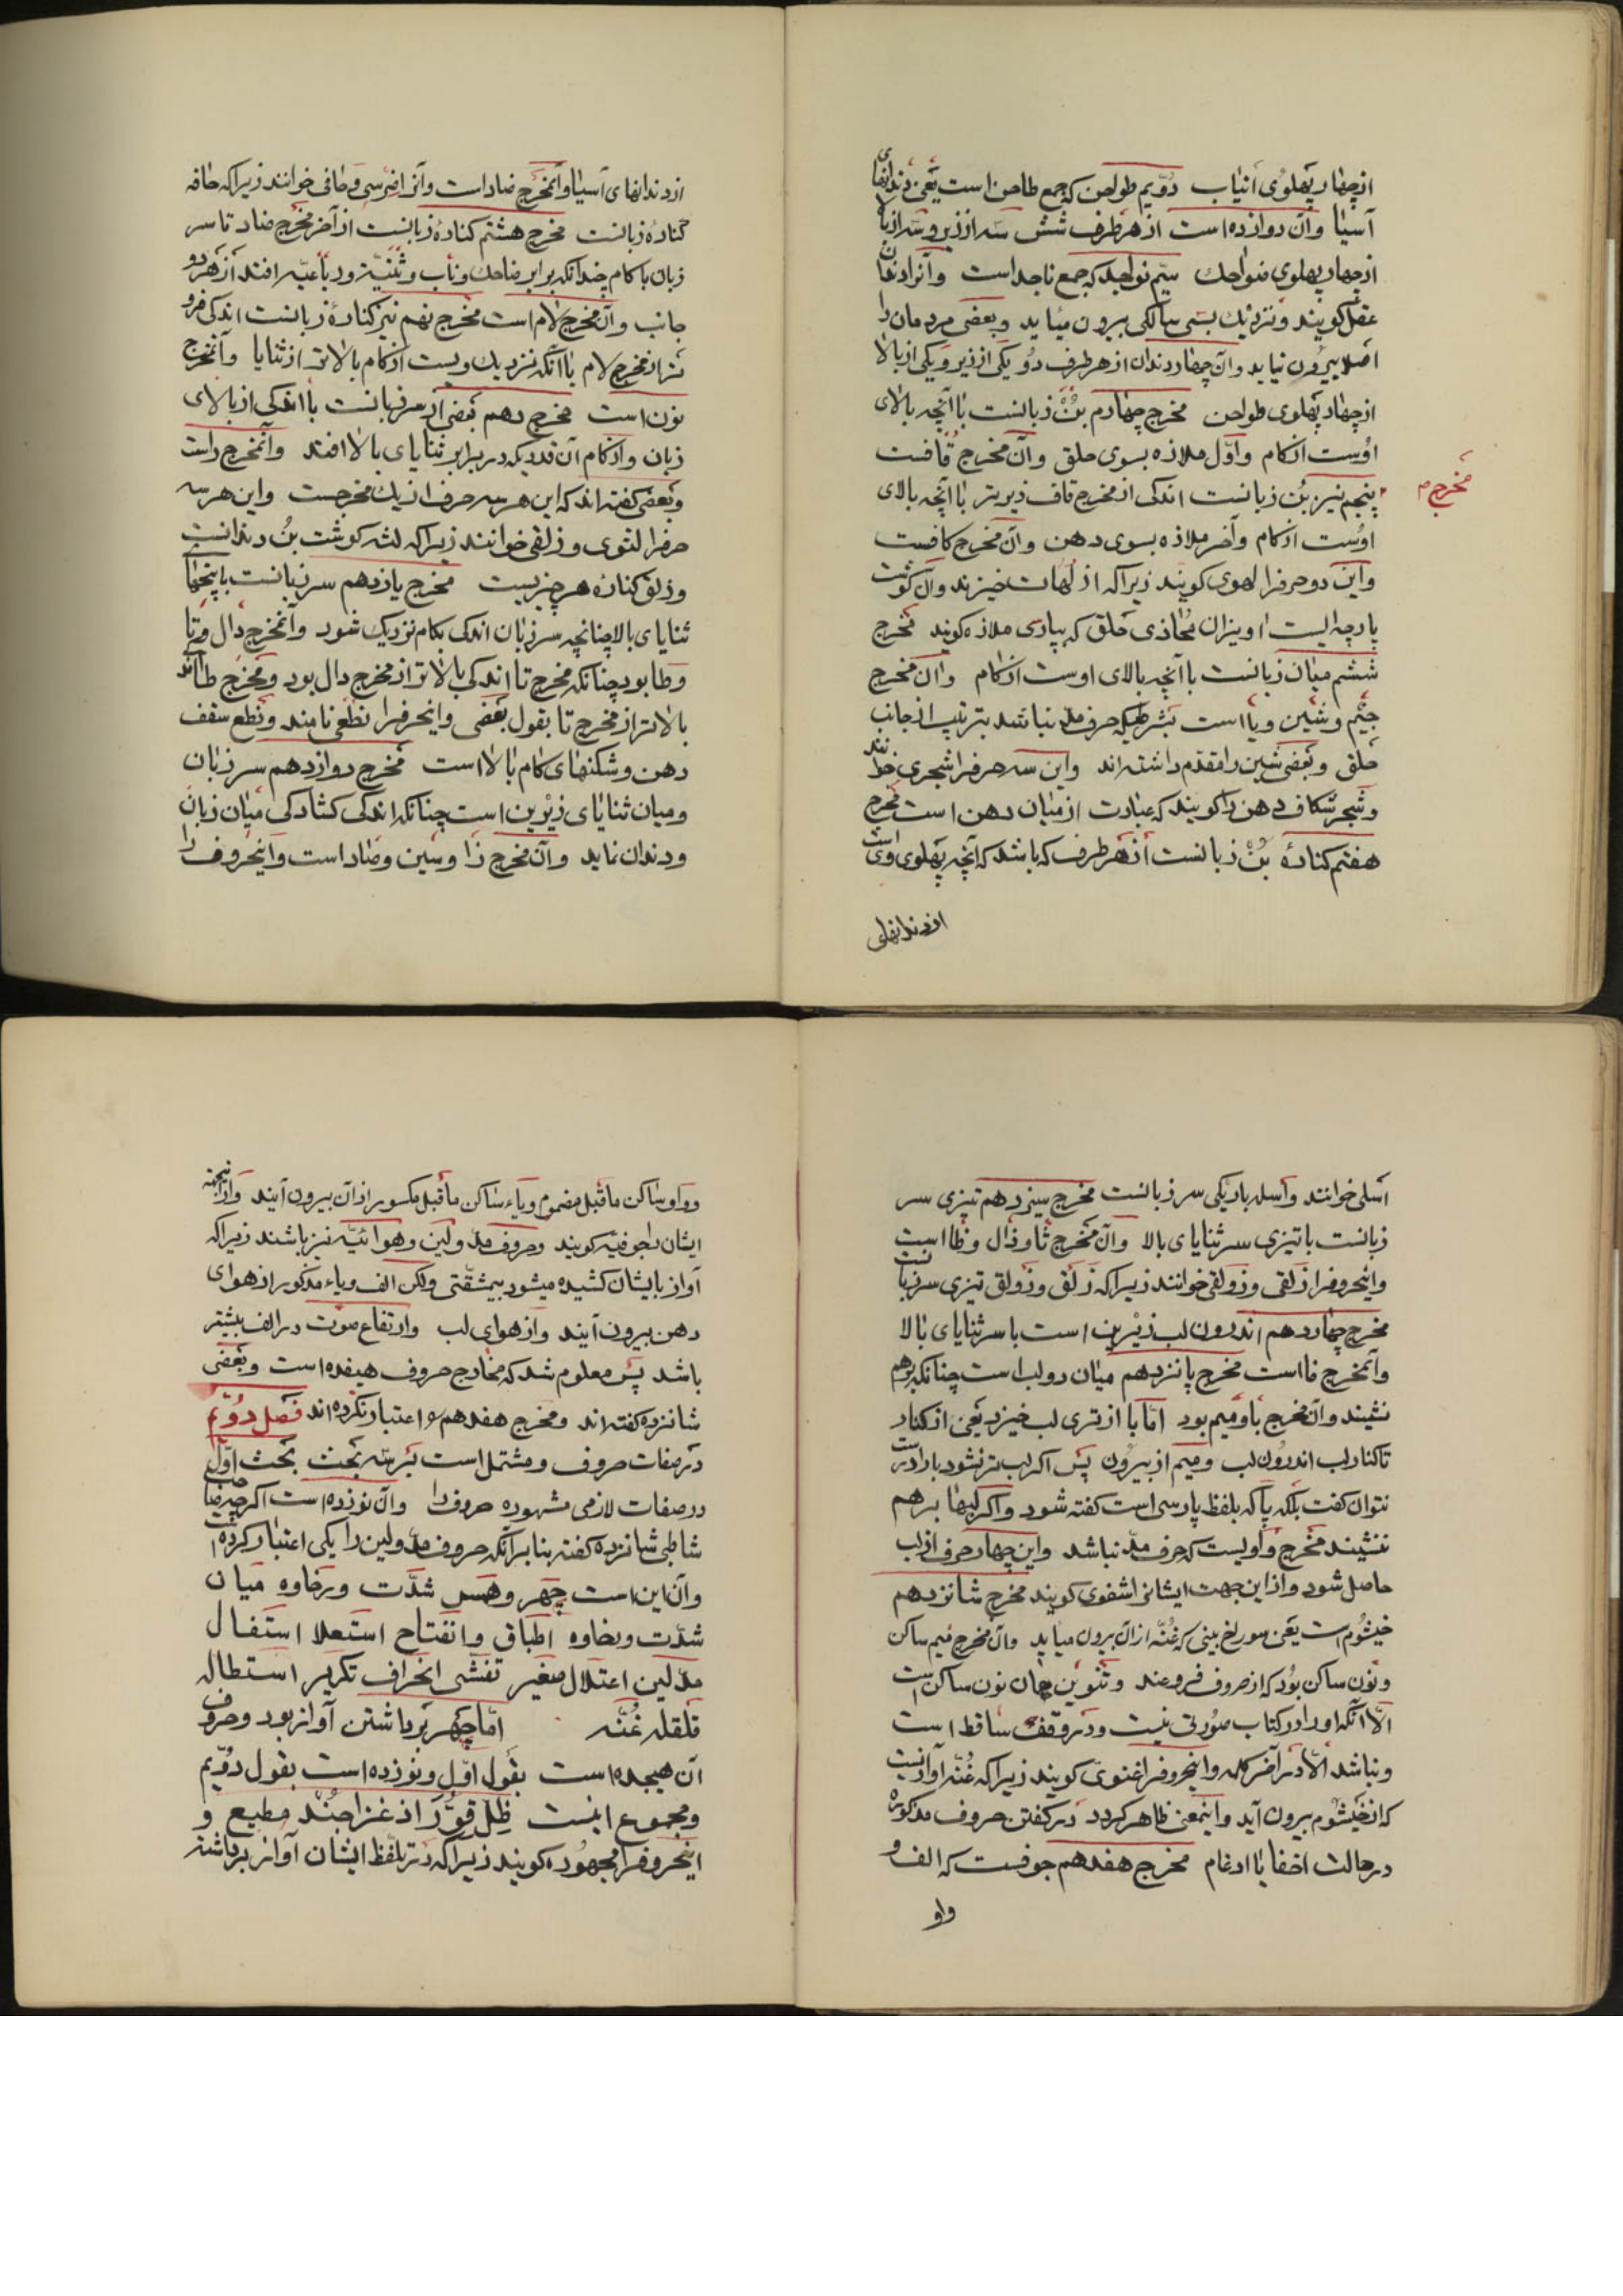 از چهار پهلوی انیاب دویم طواحن که جمع طاحن است یعنی دندانهای
آسیا و آن دوازده است از هر طرف شش سه از زیر و سه از بالا
از چهار پهلوی ضواحك سیم نواجد که جمع ناجد است و آنرا دندان
عقل کویند و نزدیك بسی سالکی بیرون میاید و بعضی مردمان را
اصلا بیرون نیاید و آن چهار دندان از هر طرف دو یکی از زیر و یکی از بالا
از چهار پهلوی طواحن مخرج چهارم بن زبانست با آنچه بالای
اوست از کام و اول ملازه بسوی حلق و آن مخرج قافست
مخرج م
پنجم نیز بن زبانست اندکی از مخرج قاف زیرتر با آنچه بالای
اوست از کام و آخر ملازه بسوی دهن و آن مخرج کافست
و این دو حرفرا لهوی کویند زیرا که از لهات خیزند و آن کوشت
پارچه ایست اویزان محاذی حلق که بپارسی ملازه کویند مخرج
ششم میان زبانست با آنچه بالای اوست از کام و ان مخرج
جیم و شین و یا است بشرطیکه حرف مد نباشد بترتیب از جانب
حلق و بعضی شین را مقدم داشته اند و این سه حرفرا شجری خوانند
و شجر شکاف دهن را کویند که عبارت از میان دهن است مخرج
هفتم کنارهٔ بن زبانست از هر طرف که باشد که آنچه پهلوی وی است
از دندانهای
از دندانهای آسیا و آنمخرج ضاد است و آنرا ضرسی و حافی خوانند زیرا که حافه
کنارهٔ زبانست مخرج هشتم کنارهٔ زبانست از آخر مخرج ضاد تا سر
زبان با کام چندانکه برابر ضاحك و ناب و ثنیه و رباعیه افتد از هر دو
جانب و آن مخرج لام است مخرج نهم نیز کنارهٔ زبانست اندکی فرو
تر از مخرج لام با آنکه نزدیك ویست از کام بالاتر از ثنایا و آنمخرج
نون است مخرج دهم بعضی از سر زبانست با اندکی از بالای
زبان و از کام آن قدر که در برابر ثنایای بالا افتد و آنمخرج راست
و بعضی کفته اند که این هر سه حرف از یك مخرجست و این هر سه
حرفرا لثوی و ذلقی خوانند زیرا که لثه کوشت بن دندانست
و ذلق کنارهٔ هر چیزیست مخرج یازدهم سر زبانست با بیخهای
ثنایای بالا چنانچه سر زبان اندکی بکام نزدیک شود و آنمخرج دال و تا
و طا بود چنانکه مخرج تا اندکی بالاتر از مخرج دال بود و مخرج طا اندک
بالاتر از مخرج تا بقول بعضی و اینحرفرا نطعی نامند و نطع سقف
دهن و شکنهای کام بالا است مخرج دوازدهم سر زبان
و میان ثنایای زیرین است چنانکه اندکی کشادکی میان زبان
و دندان نماید و آن مخرج زا و سین و صاد است و اینحروف را
اسلی خوانند و اسله باریکی سر زبانست مخرج سیزدهم تیزی سر
زبانست با تیزی سر ثنایای بالا و آن مخرج ثا و ذال و ظا است
و اینحروفرا ذلقی و ذولقی خوانند زیرا که ذلق و ذولق تیزی سر زبانست
مخرج چهاردهم اندرون لب زیرین است با سر ثنایای بالا
و آنمخرج فا است مخرج پانزدهم میان دو لب است چنانکه برهم
نشیند و ان مخرج با و میم بود اما با از تری لب خیزد یعنی از کنار
تا کنار لب اندرون لب و میم از بیرون پس اکر لب تر نشود با را درست
نتوان کفت بلکه پا که بلفظ پارسی است کفته شود و اکر لبها برهم
ننشیند مخرج واویست که حرف مد نباشد و این چهار حرف از لب
حاصل شود و از این جهت ایشانرا شفوی کویند مخرج شانزدهم
خیشوم است یعنی سوراخ بینی که غنه از ان بیرون میاید و آن مخرج میم ساکن
و نون ساکن بود که از حروف فروعند و تنوین چنان نون ساکن است
الا آنکه او را در کتاب صورتی نیست و در وقف ساقط است
و نباشد الا در آخر کلمه و اینحروفرا غنوی کویند زیرا که غنه آوازیست
که از خیشوم بیرون آید و اینمعنی ظاهر کردد در کفتن حروف مذکوره
در حالت اخفا یا ادغام مخرج هفدهم جوفست که الف و
واو
و واو ساکن ماقبل مضموم و یاء ساکن ماقبل مکسور از آن بیرون آیند و از اینجهته
ایشان را جوفیه کویند و حروف مد و لین و هوائیه نیز باشند زیرا که
آواز بایشان کشیده میشود بیمشقتی ولکن الف و یاء مذکور از هوای
دهن بیرون آیند و از هوای لب و ارتفاع صوت در الف بیشتر
باشد پس معلوم شد که مخارج حروف هیفده است و بعضی
شانزده کفته اند و مخرج هفدهم را اعتبار نکرده اند فصل دویم
در صفات حروف و مشتمل است بر سه بحث بحث اول
در صفات لازمی مشهوره حروف را و آن نوزده است اکر چه صاحب
شاطبی شانزده کفته بنا بر آنکه حروف مد و لین را یکی اعتبار کرده است
و آن این است جهر و همس شدت و رخاوه میان
شدت و رخاوه اطباق و انفتاح استعلا استفال
مد لین اعتلال صفیر تفشی انحراف تکریر استطاله
قلقله غنه اما جهر برداشتن آواز بود و حروف
آن هیجده است بقول اول و نوزده است بقول دویم
و مجموع اینست ظل قو ر اذ غزا جند مطیع و
اینحروفرا مجهوره کویند زیرا که در تلفظ ایشان آواز برداشته